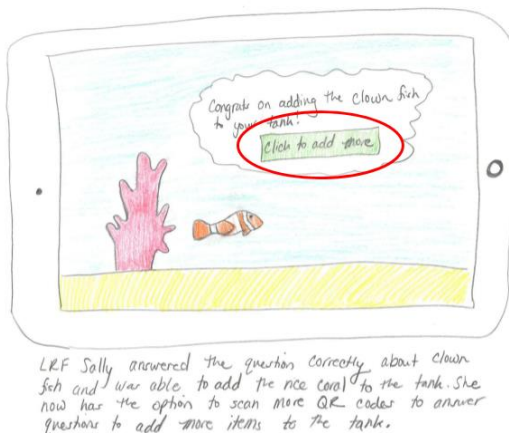 Congrats on adding the clown fish
to your tank!
Click to add more
LRF Sally answered the question correctly about clown
fish and was able to add the rice coral to the tank. She
now has the option to scan more QR codes to answer
questions to add more items to the tank.